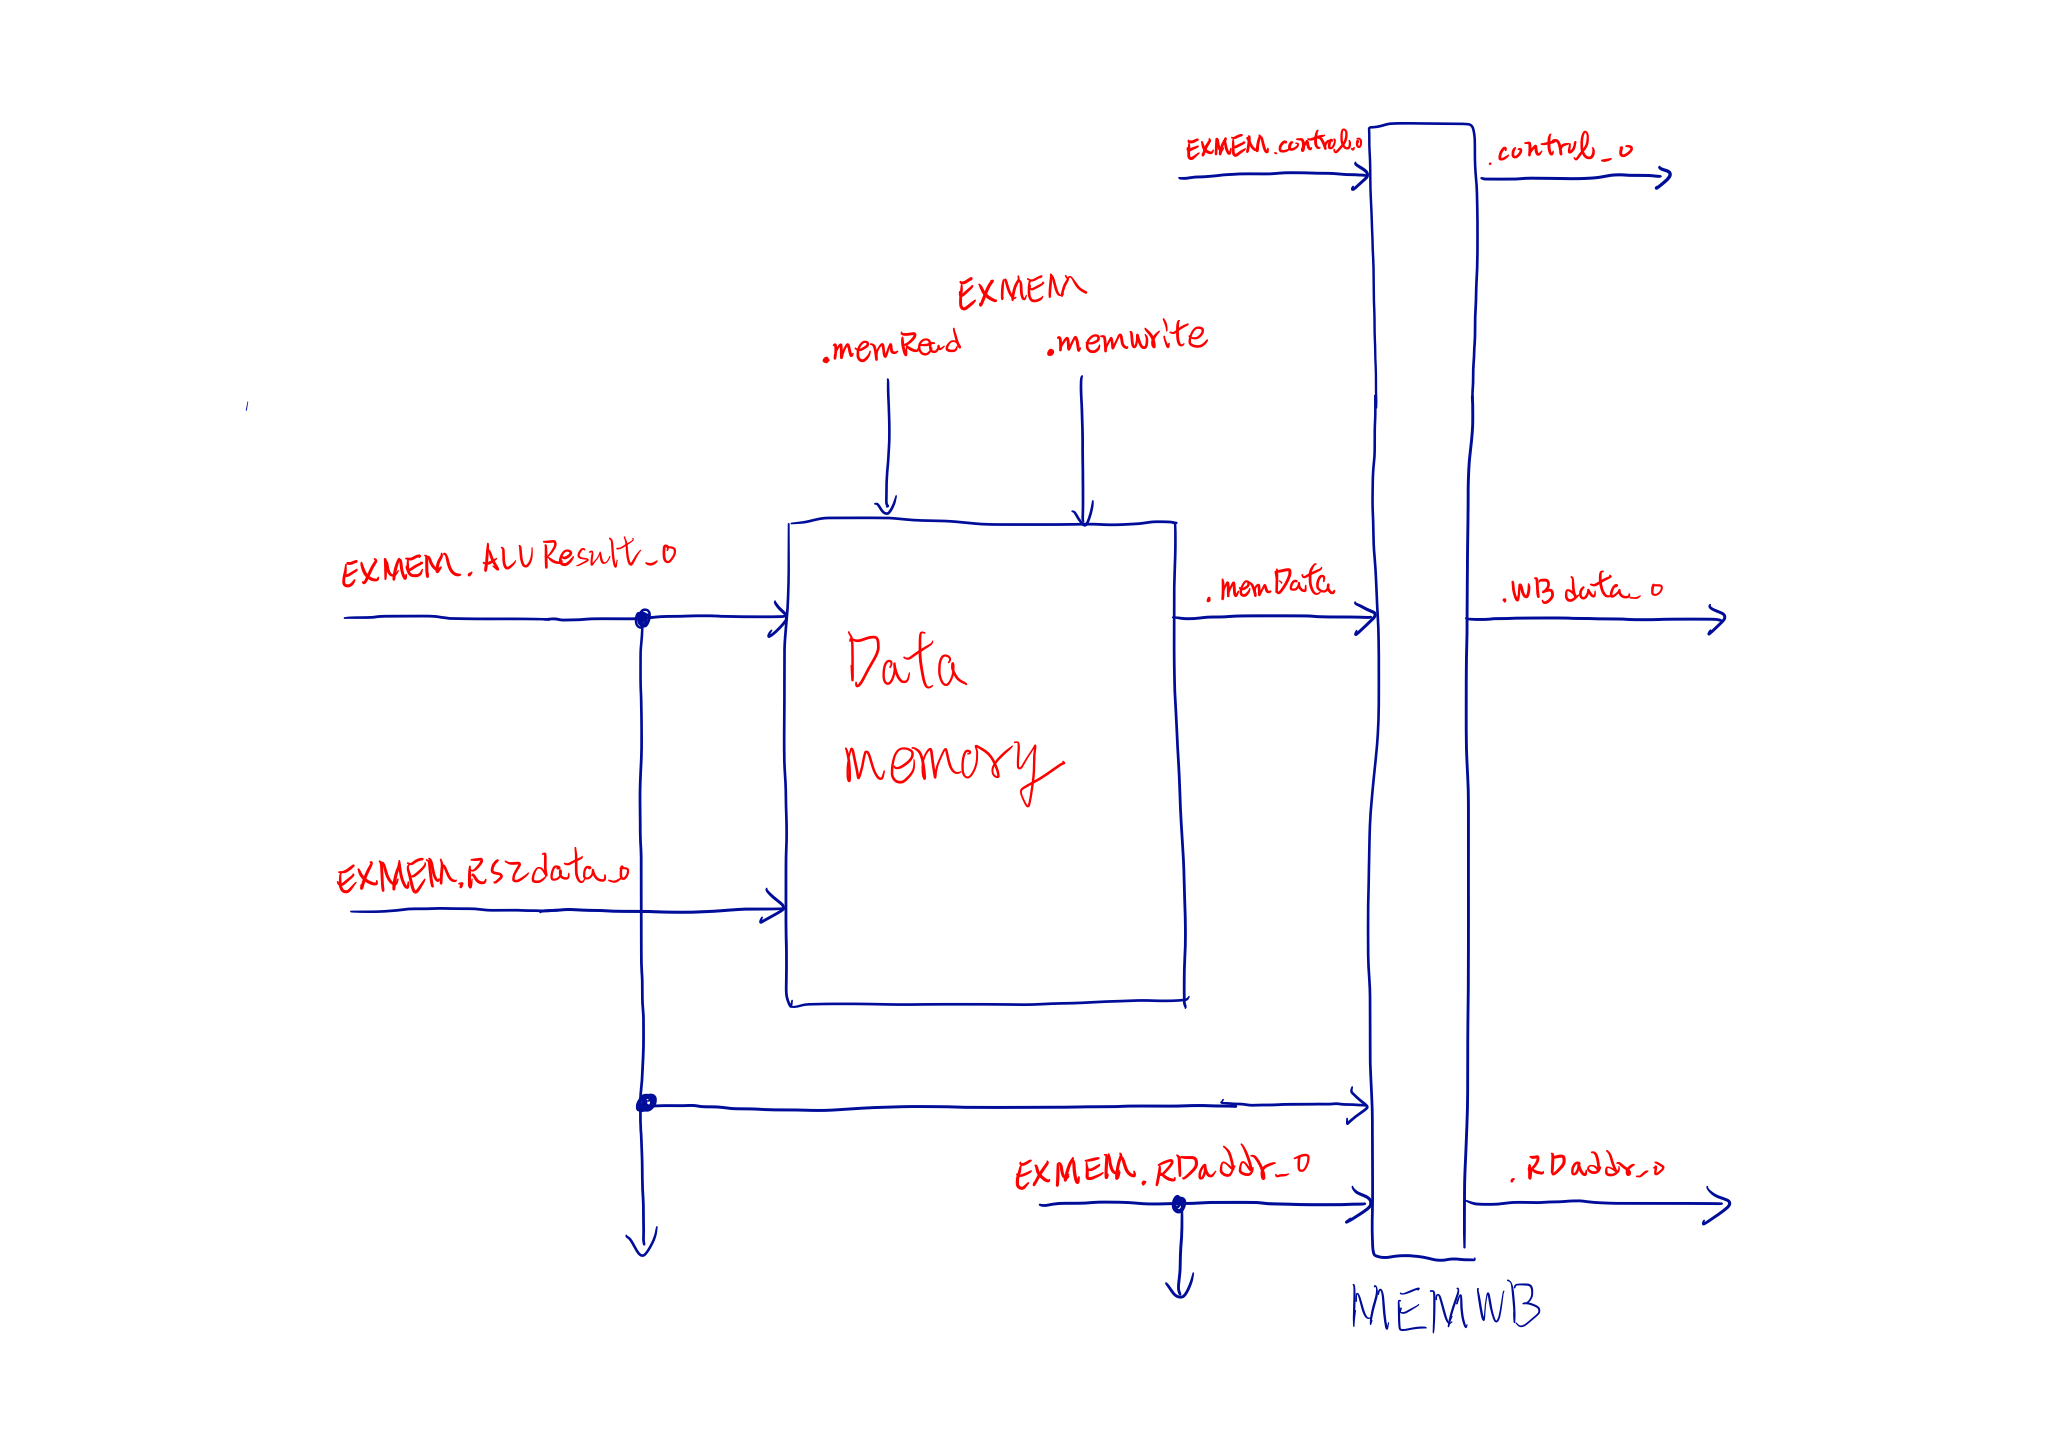 EXMEM.control_o
.control_o
EXMEM
.memRead
.memwrite
EXMEM.ALUResult_o
.memData
.WBdata_o
Data
memory
EXMEM.RS2data_o
EXMEM.RDaddr_o
.RDaddr_o
MEMWB